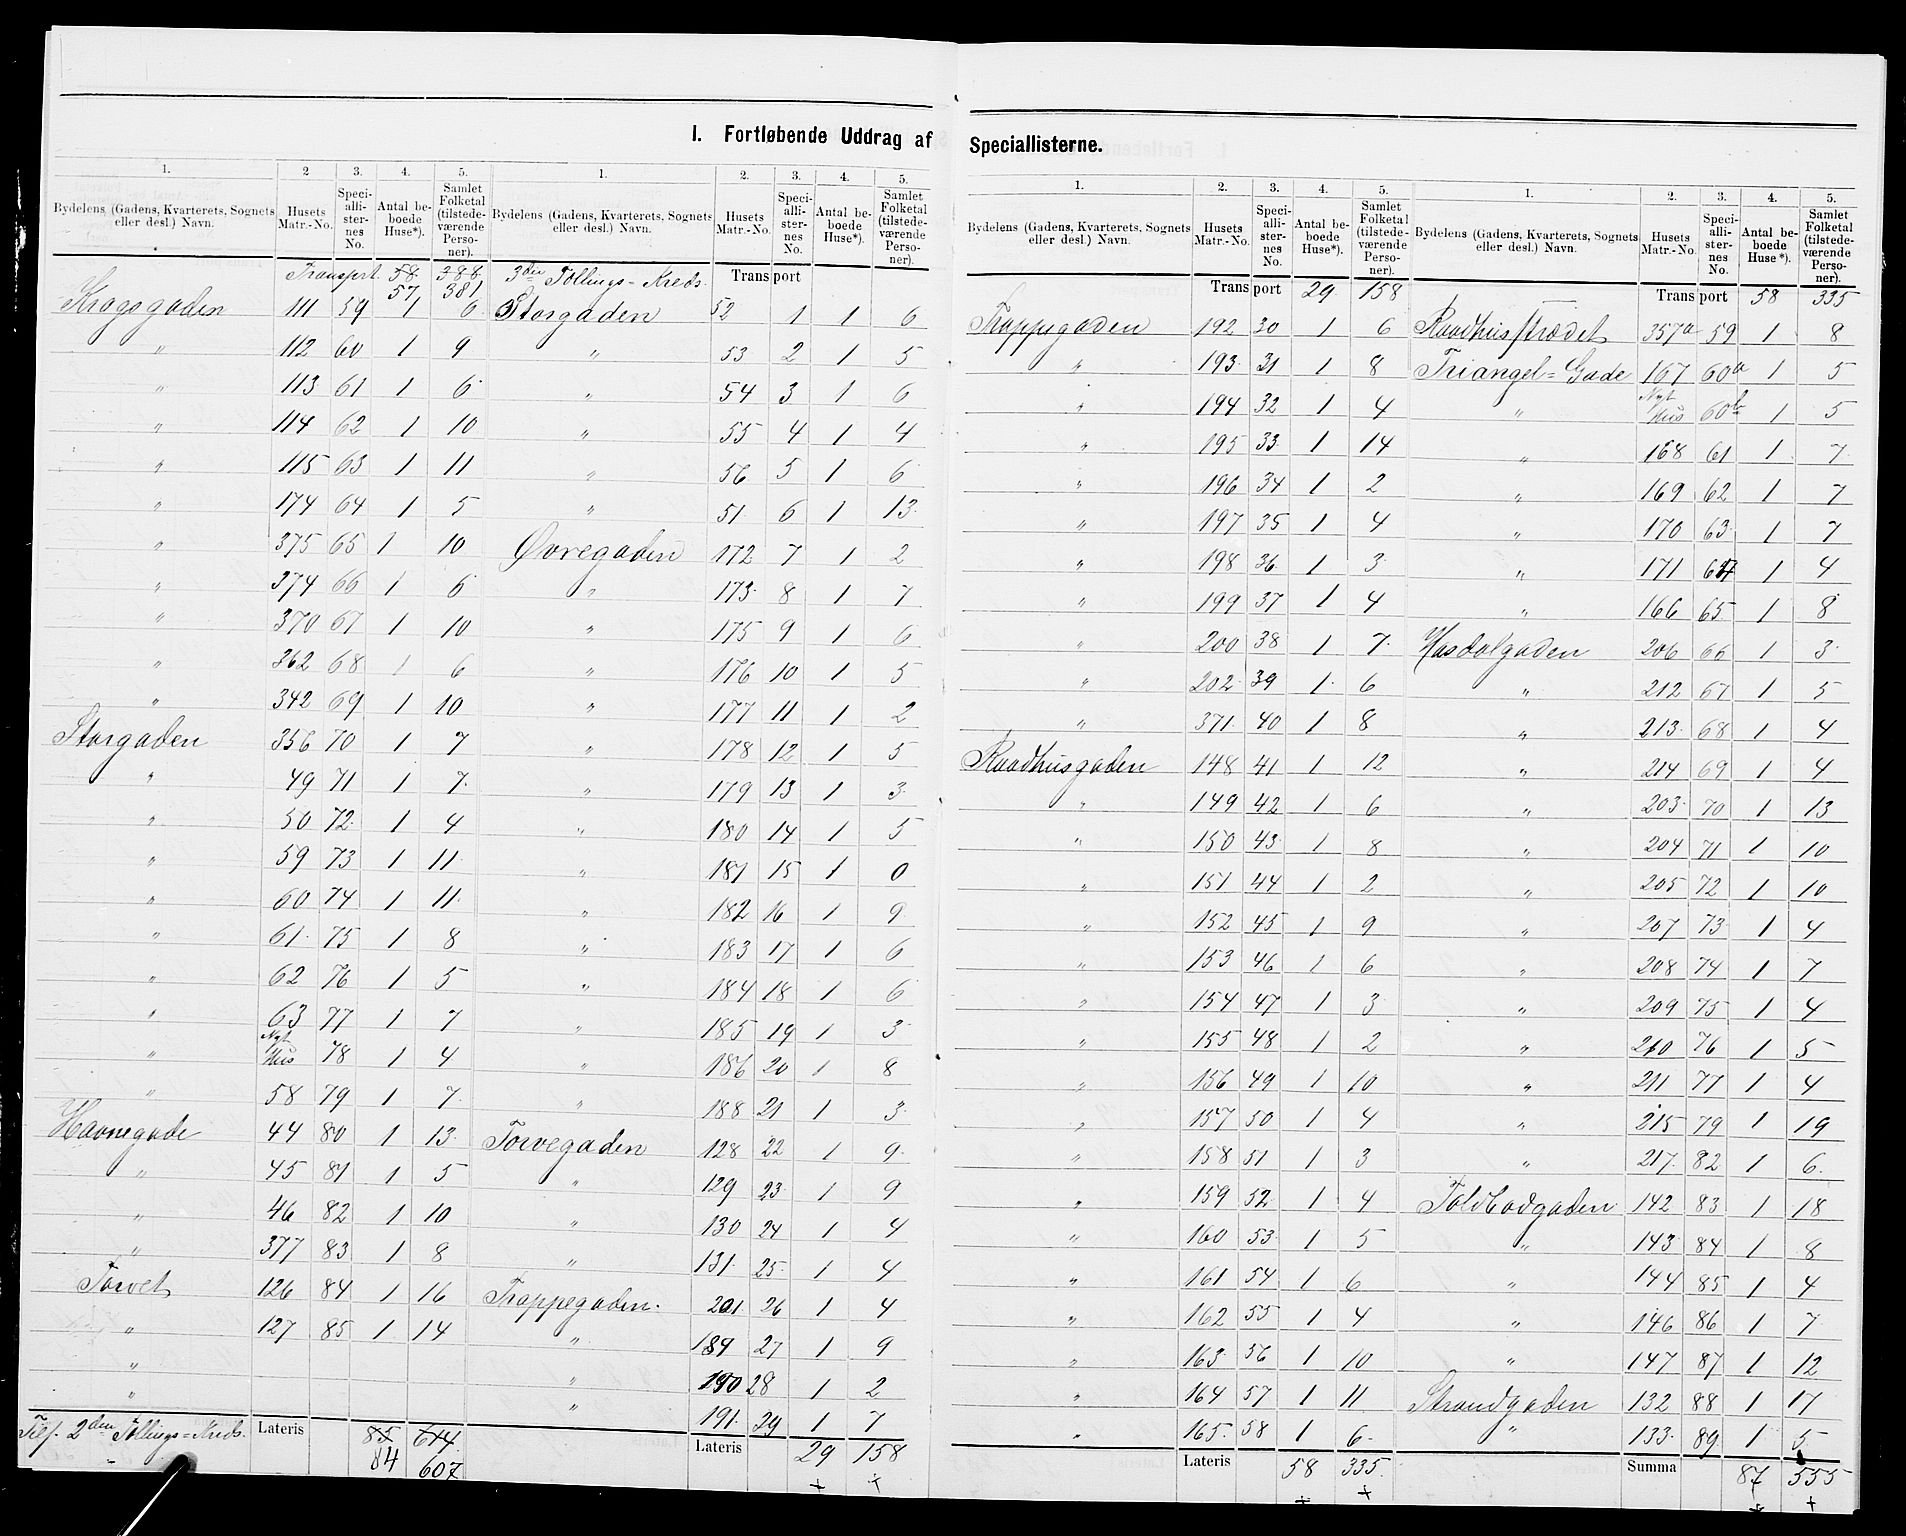 I. Fortløbende Uddrag af Speciallisterne.
1. 2 3. 4. 5. 1. 2. 3. 4. 5.
Bydelens, (Gadens, Kvarterets, Sognets eller desl.) Navn. Husets Matr.-No. Speciallisternes No. Antal beboede Huse*). Samlet Folketal (tilstedeværende Personer). Bydelens, (Gadens, Kvarterets, Sognets eller desl.) Navn. Husets Matr.-No. Speciallisternes No. Antal beboede Huse*). Samlet Folketal (tilstedeværende Personer).
Transport 58 388 3die Tællings=Kreds. Transport
57 381
Krogsgaden 111 59 1 6 Storgaden 52 1 1 6
" 112 60 1 9 " 53 2 1 5
" 113 61 1 6 " 54 3 1 6
" 114 62 1 10 " 55 4 1 4
" 115 63 1 11 " 56 5 1 6
" 174 64 1 5 " 51 6 1 13
" 375 65 1 10 Øvregaden 172 7 1 2
" 374 66 1 6 " 173 8 1 7
" 370 67 1 10 " 175 9 1 6
" 362 68 1 6 " 176 10 1 5
" 342 69 1 10 " 177 11 1 2
Storgaden 356 70 1 7 " 178 12 1 5
" 49 71 1 7 " 179 13 1 3
" 50 72 1 4 " 180 14 1 5
" 59 73 1 11 " 181 15 1 0
" 60 74 1 11 " 182 16 1 9
" 61 75 1 8 " 183 17 1 6
" 62 76 1 5 " 184 18 1 6
" 63 77 1 7 " 185 19 1 3
" Nyt Hus 78 1 4 " 186 20 1 8
" 58 79 1 7 " 188 21 1 3
Havnegade 44 80 1 13 Torvegaden 128 22 1 9
" 45 81 1 5 " 129 23 1 9
" 46 82 1 10 " 130 24 1 4
" 377 83 1 8 " 131 25 1 4
Torvet 126 84 1 16 Trappegaden. 201 26 1 4
" 127 85 1 14 " 189 27 1 9
" " 190 28 1 2
" " 191 29 1 7
2den Tællings=Kreds. Lateris 85 614 Lateris 29 158
84 607 + +
1. 2. 3. 4. 5. 1. 2. 3. 4. 5.
Bydelens, (Gadens, Kvarterets, Sognets eller desl.) Navn. Husets Matr.-No. Speciallisternes No. Antal beboede Huse*). Samlet Folketal (tilstedeværende Personer). Bydelens, (Gadens, Kvarterets, Sognets eller desl.) Navn. Husets Matr.-No. Speciallisternes No. Antal beboede Huse*). Samlet Folketal (tilstedeværende Personer).
Transport 29 158 Transport 58 335
Trappegaden 192 30 1 6 Raadhusstrædet 357a 59 1 8
" 193 31 1 8 Triangel=Gade 167 60a 1 5
" 194 32 1 4 " Nyt Hus 60b 1 5
" 195 33 1 14 " 168 61 1 7
" 196 34 1 2 " 169 62 1 7
" 197 35 1 4 " 170 63 1 7
" 198 36 1 3 " 171 64 1 4
" 199 37 1 4 " 166 65 1 8
" 200 38 1 7 Hasdalgaden 206 66 1 3
" 202 39 1 6 " 212 67 1 5
" 371 40 1 8 " 213 68 1 4
Raadhusgaden 148 41 1 12 " 214 69 1 4
" 149 42 1 6 " 203 70 1 13
" 150 43 1 8 " 204 71 1 10
" 151 44 1 2 " 205 72 1 10
" 152 45 1 9 " 207 73 1 4
" 153 46 1 6 " 208 74 1 7
" 154 47 1 3 " 209 75 1 4
" 155 48 1 2 " 210 76 1 5
" 156 49 1 10 " 211 77 1 4
" 157 50 1 4 " 215 79 1 19
" 158 51 1 3 " 217 82 1 6
" 159 52 1 4 Toldbodgaden 142 83 1 18
" 160 53 1 5 " 143 84 1 8
" 161 54 1 6 " 144 85 1 4
" 162 55 1 4 " 146 86 1 7
" 163 56 1 10 " 147 87 1 12
" 164 57 1 11 Strandgaden 132 88 1 17
" 165 58 1 6 " 133 89 1 5
Lateris 58 335 Summa 87 555
+ + + +